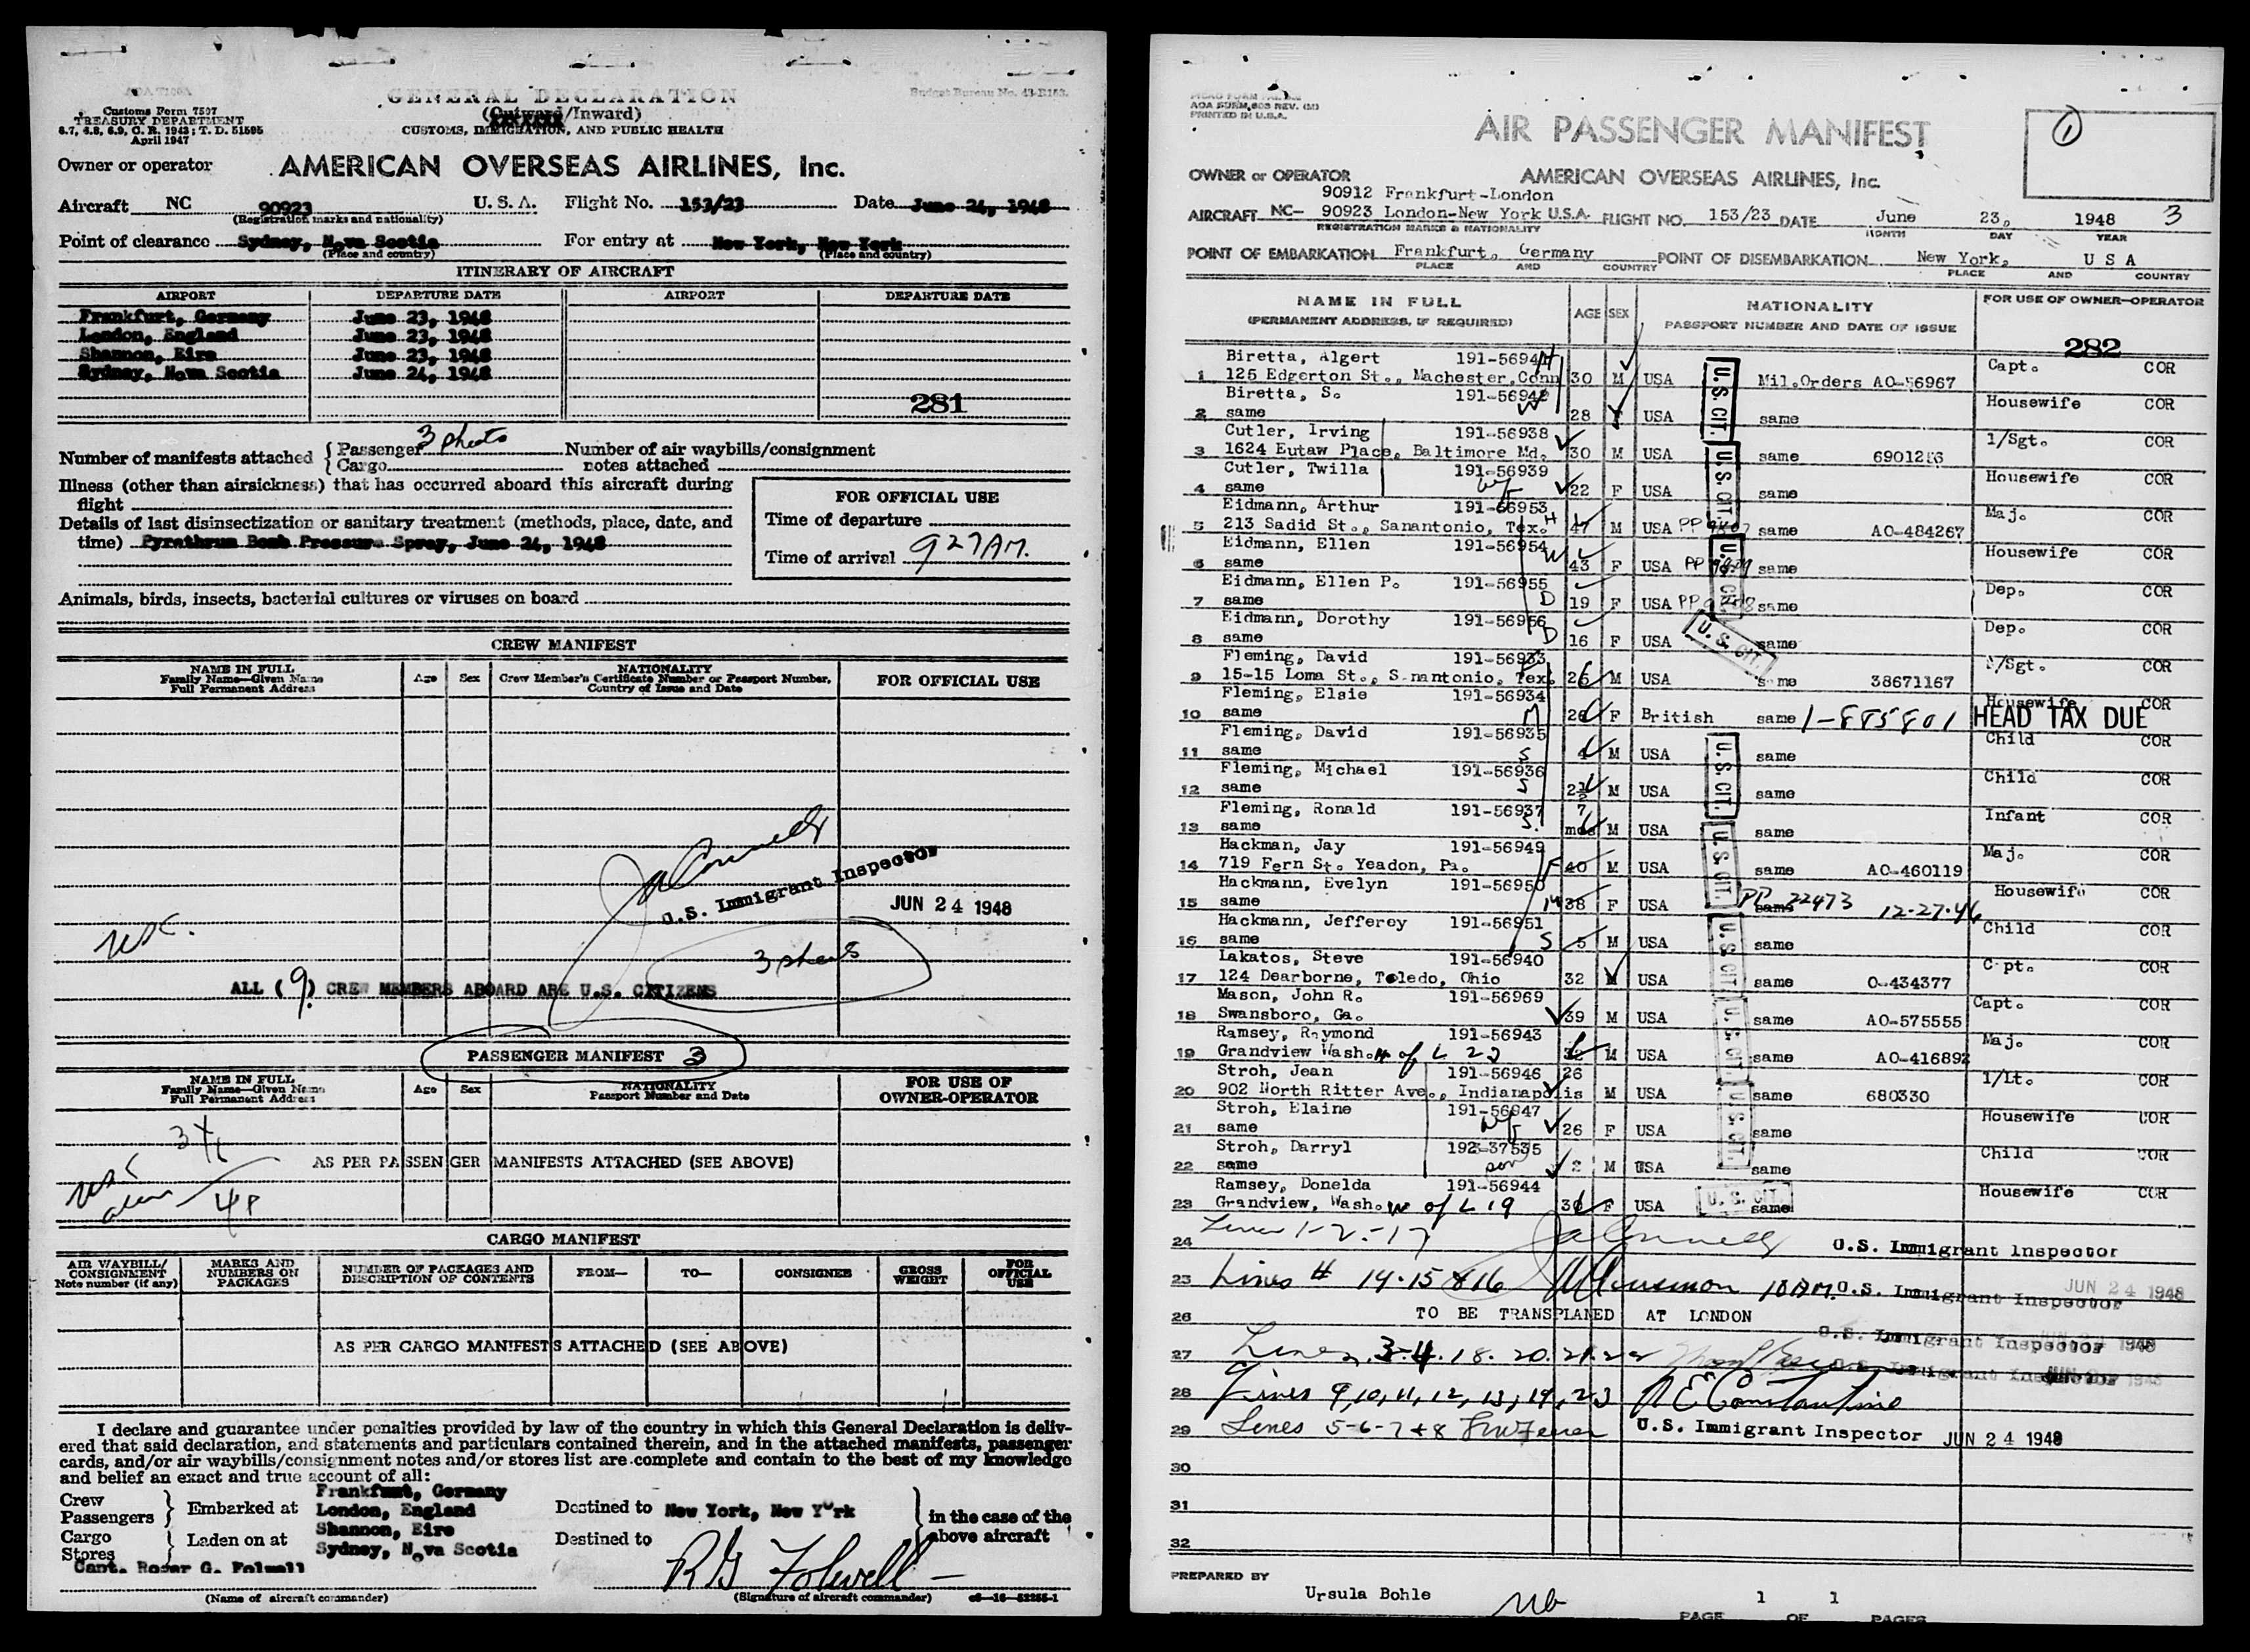 Customs Form 7507
TREASURY DEPARTMENT
6.7, 6.8, 6.9, C. R. 1943; T. D. 51595
April 1947
GENERAL DECLARATION
(Outward/Inward)
CUSTOMS, IMMIGRATION, AND PUBLIC HEALTH
Budget Bureau No. 43-R163.
Owner or operator AMERICAN OVERSEAS AIRLINES, Inc.
Aircraft NC 90923 U. S. A. Flight No. 153/23 Date June 24, 1948
(Registration marks and nationality)
Point of clearance Sydney, Nova Scotia For entry at New York, New York
(Place and country) (Place and country)
ITINERARY OF AIRCRAFT
AIRPORT DEPARTURE DATE AIRPORT DEPARTURE DATE
Frankfurt, Germany June 23, 1948
London, England June 23, 1948
Shannon, Eire June 23, 1948
Sydney, Nova Scotia June 24, 1948
281
Number of manifests attached { Passenger 3 sheets Number of air waybills/consignment
Cargo notes attached
Illness (other than airsickness) that has occurred aboard this aircraft during
flight
Details of last disinsectization or sanitary treatment (methods, place, date, and
time) Pyrethrum Bomb Pressure Spray, June 24, 1948
FOR OFFICIAL USE
Time of departure
Time of arrival 927AM.
Animals, birds, insects, bacterial cultures or viruses on board
CREW MANIFEST
NAME IN FULL
Family Name—Given Name
Full Permanent Address
Age Sex
NATIONALITY
Crew Member's Certificate Number or Passport Number,
Country of Issue and Date
FOR OFFICIAL USE
U.S. Immigrant Inspector
JUN 24 1948
usc.
3 sheets
ALL (9) CREW MEMBERS ABOARD ARE U.S. CITIZENS
PASSENGER MANIFEST 3
NAME IN FULL
Family Name—Given Name
Full Permanent Address
Age Sex
NATIONALITY
Passport Number and Date
FOR USE OF
OWNER-OPERATOR
AS PER PASSENGER MANIFESTS ATTACHED (SEE ABOVE)
usc
alien
CARGO MANIFEST
AIR WAYBILL/
CONSIGNMENT
Note number (if any)
MARKS AND
NUMBERS ON
PACKAGES
NUMBER OF PACKAGES AND
DESCRIPTION OF CONTENTS
FROM— TO— CONSIGNEE
GROSS
WEIGHT
FOR
OFFICIAL
USE
AS PER CARGO MANIFESTS ATTACHED (SEE ABOVE)
I declare and guarantee under penalties provided by law of the country in which this General Declaration is deliv-
ered that said declaration, and statements and particulars contained therein, and in the attached manifests, passenger
cards, and/or air waybills/consignment notes and/or stores list are complete and contain to the best of my knowledge
and belief an exact and true account of all:
Crew
Passengers } Embarked at
Cargo
Stores } Laden on at
Frankfurt, Germany
London, England
Shannon, Eire
Sydney, Nova Scotia
Destined to New York, New York
Destined to
in the case of the
above aircraft
Capt. Roger G. Folwell
R G Folwell
(Name of aircraft commander) (Signature of aircraft commander) c6—16—52255-1
AOA FORM 603 REV. (M)
PRINTED IN U.S.A.
AIR PASSENGER MANIFEST
1
OWNER or OPERATOR AMERICAN OVERSEAS AIRLINES, Inc.
90912 Frankfurt-London
AIRCRAFT NC- 90923 London-New York U.S.A. FLIGHT NO. 153/23 DATE June 23, 1948 3
REGISTRATION MARKS & NATIONALITY MONTH DAY YEAR
POINT OF EMBARKATION Frankfurt, Germany POINT OF DISEMBARKATION New York, U S A
PLACE AND COUNTRY PLACE AND COUNTRY
NAME IN FULL
(PERMANENT ADDRESS, IF REQUIRED)
AGE SEX
NATIONALITY
PASSPORT NUMBER AND DATE OF ISSUE
FOR USE OF OWNER-OPERATOR
282
Biretta, Algert 191-56941 H Capt. COR
1 125 Edgerton St., Machester,Conn 30 M USA U.S. CIT. Mil.Orders AO-56967
Biretta, S. 191-56942 W Housewife COR
2 same 28 F USA same
Cutler, Irving 191-56938 1/Sgt. COR
3 1624 Eutaw Place, Baltimore Md. 30 M USA U.S. CIT. same 6901286
Cutler, Twilla 191-56939 Housewife COR
4 same wf 22 F USA same
Eidmann, Arthur 191-56953 Maj. COR
5 213 Sadid St., Sanantonio, Tex. H 47 M USA PP same AO-484267
Eidmann, Ellen 191-56954 W Housewife COR
6 same 43 F USA PP U.S. CIT. same
Eidmann, Ellen P. 191-56955 Dep. COR
7 same D 19 F USA PP same
Eidmann, Dorothy 191-56956 Dep. COR
8 same D 16 F USA U.S. CIT. same
Fleming, David 191-56933 /Sgt. COR
9 15-15 Loma St., S nantonio, Tex. 26 M USA same 38671167
Fleming, Elsie 191-56934 Housewife COR
10 same M 26 F British same 1-885801 HEAD TAX DUE
Fleming, David 191-56935 Child COR
11 same S 4 M USA U.S. CIT. same
Fleming, Michael 191-56936 Child COR
12 same S 2½ M USA same
Fleming, Ronald 191-56937 7 Infant COR
13 same S. mos M USA U.S. CIT. same
Hackman, Jay 191-56949 Maj. COR
14 719 Fern St. Yeadon, Pa. F 40 M USA same AO-460119
Hackmann, Evelyn 191-56950 Housewife COR
15 same M 38 F USA same PP-22473 12-27-46
Hackmann, Jefferey 191-56951 Child COR
16 same S 5 M USA U.S. CIT. same
Lakatos, Steve 191-56940 C pt. COR
17 124 Dearborne, Toledo, Ohio 32 M USA same O-434377
Mason, John R. 191-56969 Capt. COR
18 Swansboro, Ga. 39 M USA U.S. CIT. same AO-575555
Ramsey, Raymond 191-56943 Maj. COR
19 Grandview Wash. H of L 23 32 M USA same AO-416892
Stroh, Jean 191-56946 26 1/Lt. COR
20 902 North Ritter Ave., Indianapolis M USA U.S. CIT. same 680330
Stroh, Elaine 191-56847 Housewife COR
21 same wf 26 F USA same
Stroh, Darryl 192-37535 Child COR
22 same son 2 M USA same
Ramsey, Donelda 191-56944 Housewife COR
23 Grandview, Wash. W of L 19 30 F USA U.S. CIT. same
24 Lines 1-2-17 U.S. Immigrant Inspector
25 Lines # 14-15 & 16 10AM. U.S. Immigrant Inspector JUN 24 1948
26 TO BE TRANSPLANED AT LONDON
U.S. Immigrant Inspector
27 Lines 3-4. 18. 20. 21. 22 U.S. Immigrant Inspector
28 Lines 9, 10, 11, 12, 13, 19, 23 N E Constantine
29 Lines 5-6-7+8 U.S. Immigrant Inspector JUN 24 1948
30
31
32
PREPARED BY
Ursula Bohle Ub
PAGE 1 OF 1 PAGES